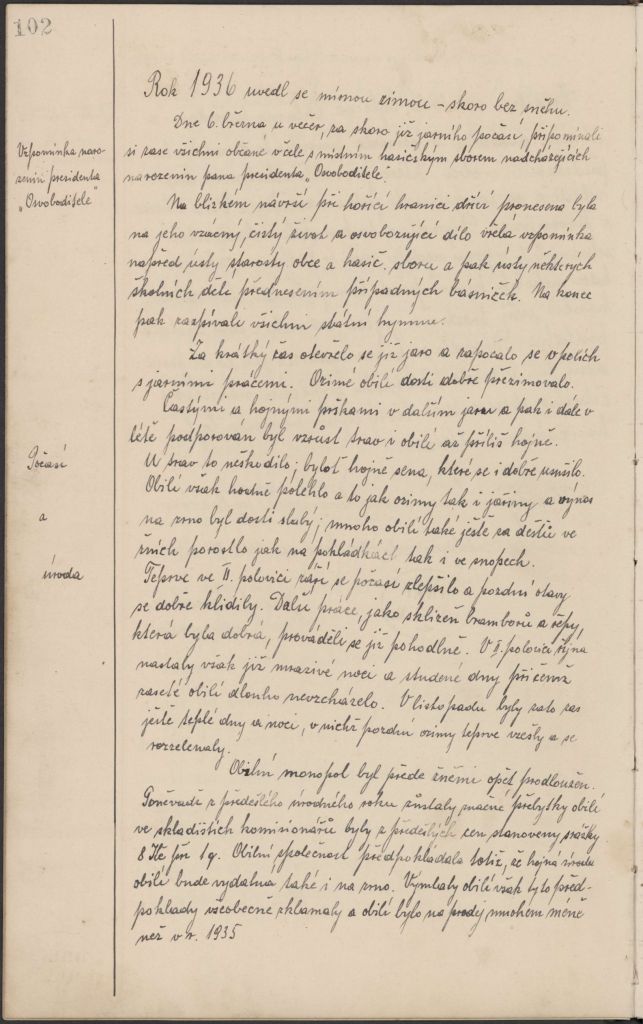 102
Rok 1936 uvedl se mírnou zimou - skoro bez sněhu.
Dne 6. března, u večer, za skoro již jarního počasí, připomínali
si zase všichni občané v čele s místním hasičským sborem nadcházejících
narozenin pana presidenta „Osvoboditele".
Vzpomínka naro-
zenin presidenta
„Osvoboditele"
Na blízkém návrší při hořící hranici dříví pronesena byla
na jeho vzácný, čistý život a osvobozující dílo vřelá vzpomínka
napřed ústy starosty obce a hasič. sboru a pak ústy některých
školních dětí, přednesením případných básniček. Na konec
pak zazpívali všichni státní hymnu.
Za krátký čas otevřelo se již jaro a započalo se v polích
s jarními pracemi. Ozimé obilí dosti dobře přezimovalo.
Častými a hojnými prškami v dalším jaru a pak i dále v
létě podporován byl vzrůst trav i obilí až příliš hojně.
U trav to neškodilo; bylot hojně sena, které se i dobře usušilo.
Obilí však hodně polehlo a to jak ozimy tak i jařiny a výnos
na zrno byl dosti slabý; mnoho obilí také ještě za dešťů ve
žních porostlo jak na pokládkách tak i ve snopech.
Teprve ve II. polovici září se počasí zlepšilo a pozdní otavy
se dobře klidily. Další práce, jako sklizeň bramborů a řepy,
která byla dobrá, prováděli se již pohodlně. V II. polovici října
nastaly však již mrazivé noci a studené dny při čemž
zaseté obilí dlouho nevzcházelo. V listopadu byly zato zas
ještě teplé dny a noci, v nichž pozdní ozimy teprve vzešly a se
rozzelenaly.
Počasí
a
úroda
Obilní monopol byl přede žněmi opět prodloužen.
Poněvadž z předešlého úrodného roku zůstaly značné přebytky obilí
ve skladištích komisionářů byly z předešlých cen stanoveny srážky
8 Kč při 1 q. Obilní společnost předpokládala totiž, že hojná úroda
obilí bude vydatna také i na zrno. Výmlaty obilí však tyto před-
poklady všeobecně zklamaly a obilí bylo na prodej mnohem méně
než v r. 1935